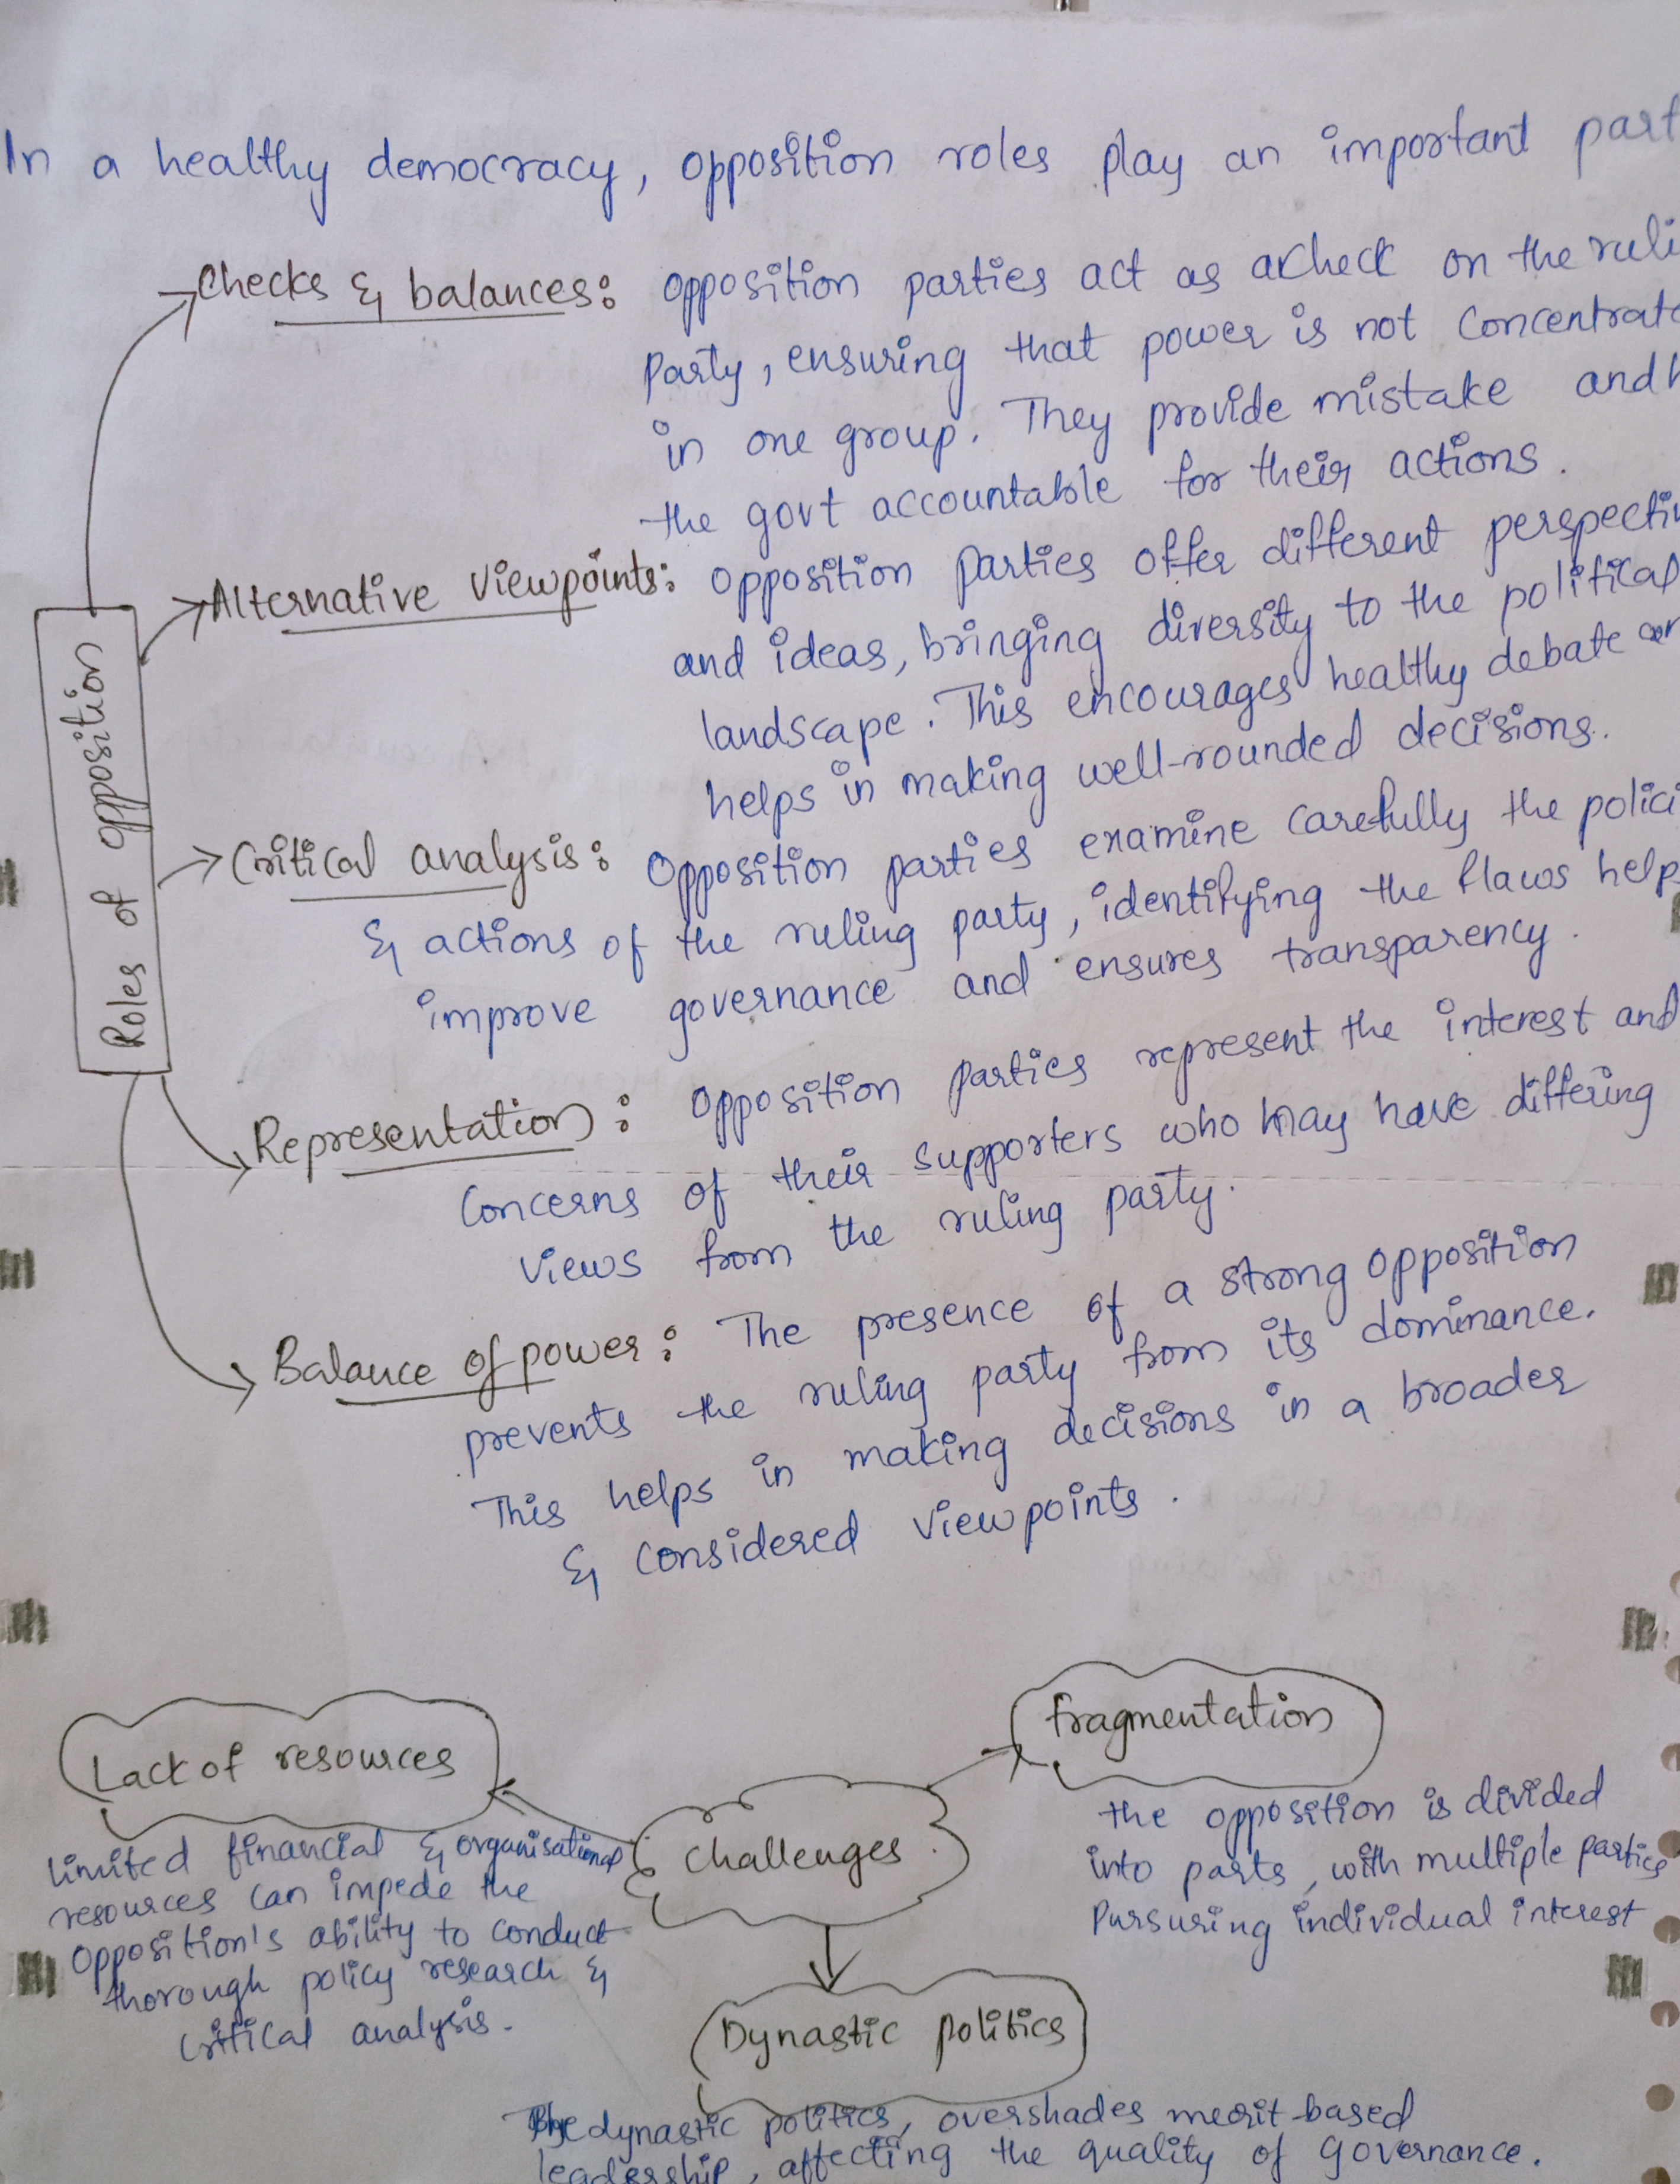 In a healthy democracy, opposition roles play an important part
Checks & balances: opposition parties act as a check on the ruli
party, ensuring that power is not concentrate
in one group. They provide mistake and h
the govt accountable for their actions.
Alternative viewpoints: opposition parties offer different perspectiv
and ideas, bringing diversity to the political
landscape. This encourages healthy debate an
helps in making well-rounded decisions.
Critical analysis: Opposition parties examine carefully the polici
& actions of the ruling party, identifying the flaws help
improve governance and ensures transparency.
Representation: Opposition parties represent the interest and
concerns of their supporters who may have differing
views from the ruling party.
Balance of power: The presence of a strong opposition
prevents the ruling party from its dominance.
This helps in making decisions in a broader
& considered viewpoints.
Roles of opposition
Fragmentation
the opposition is divided
into parts, with multiple parties
Pursuring individual interest
Lack of resources
limited financial & organisational
resources can impede the
opposition's ability to conduct
thorough policy research &
critical analysis.
challenges
Dynastic politics
The dynastic politics, overshades merit-based
leadership, affecting the quality of governance.